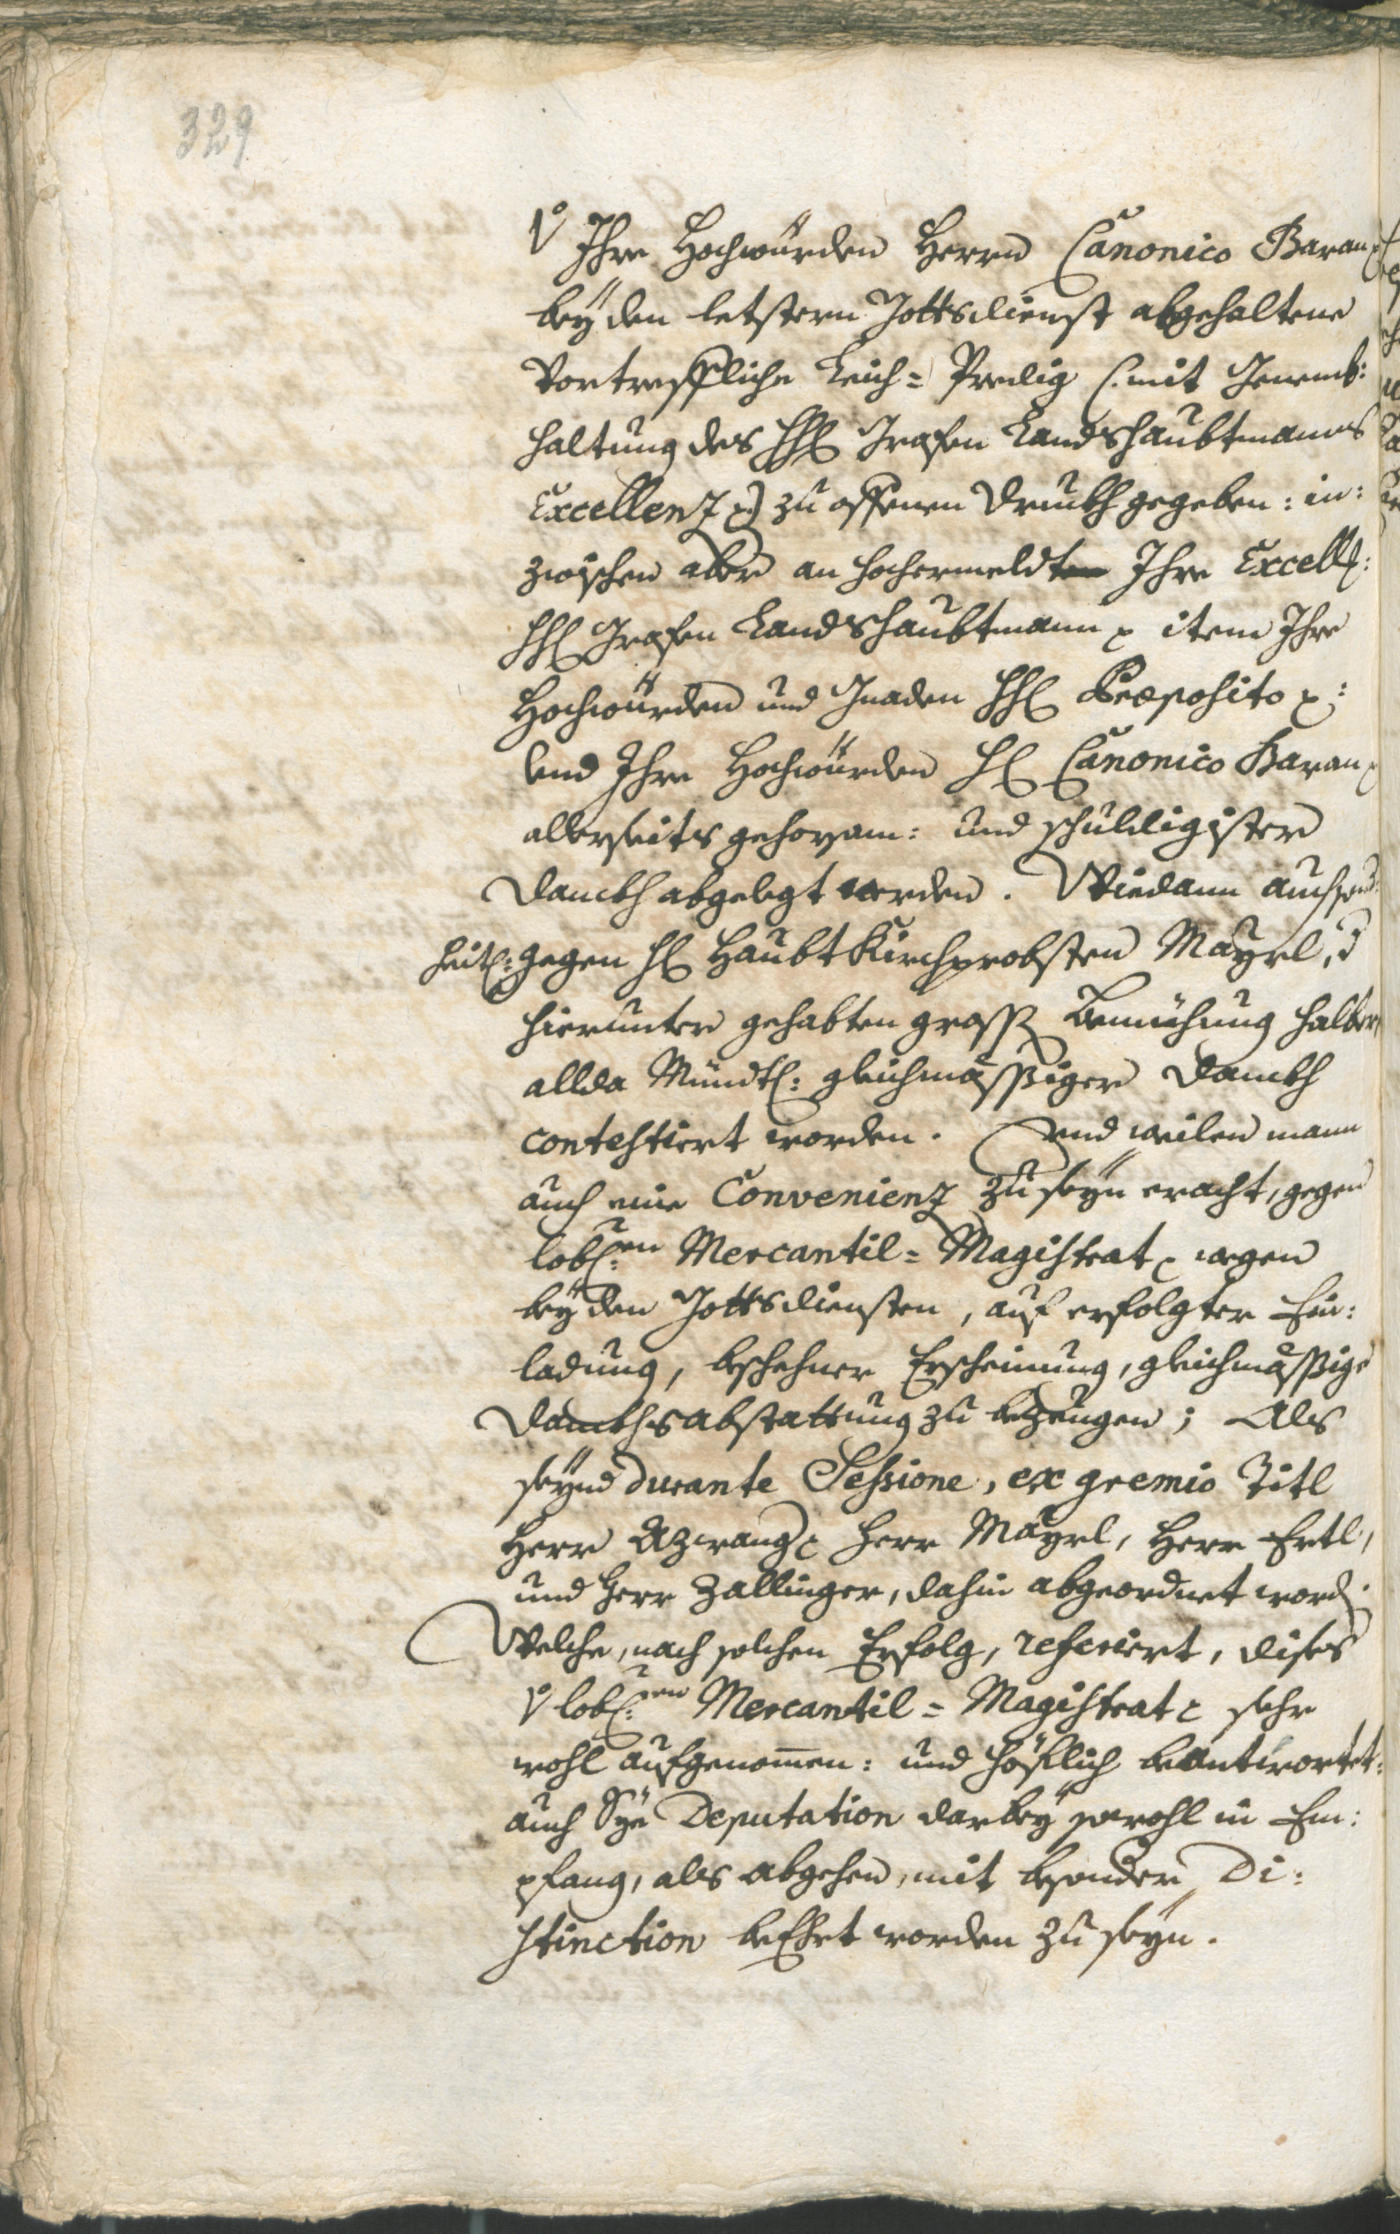 329
Ihro Hochwürden Herrn Canonico Baran
bey den letstern Gottsdienst abgehaltene
Vortreffliche Leich= Predig (: mit Genemb:
haltung des HH Grafen Landshaubtmans
Excellenz :) zu offenen Druckh gegeben: in:
zwischen aber an hochermeldt Ihro Excell:
HH Grafen Landshaubtmann item Ihro
Hochwürden und Gnaden HH Præposito :
und Ihro Hochwürden H Canonico Baran
allerseits gehorsam: und schuldigister
Danckh abgelegt werden. Wiedann auch
gegen H Haubt Kirchprobsten Mayrl,
hierunter gehabten gross Bemühung halber
allda Mündtl: gleichmässiger Danckh
contestiert worden. Und weilen mann
auch eine Convenienz zu seyn eracht, gegen
lobl:en Mercantil= Magistrat wegen
beyden Gottsdiensten, auf erfolgter Ein:
ladung, beschehner Erscheinung, gleichmässige
Danckhs abstattung zu bezeugen; Als
seynd durante Sessione, ex gremio Titl
Herr Azwang Herr Mayrl, Herr Ertl,
und Herr Zallinger, dahin abgeordnet word.
Welche, nach solchen Erfolg, referiert, dises
lobl:en Mercantil= Magistrat sehr
wohl aufgenomen: und höflich beantwortet:
auch Sye Deputation darbey sowohl in Em:
pfang, als abgehen, mit besonder Di:
stinction beEhrt worden zu seyn.